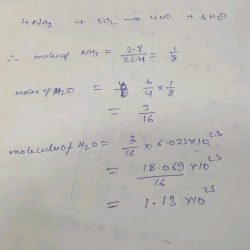 4NH3 + 5O2 → 4NO + 6H2O
∴ moles of NH3 = 2.8/22.4 = 1/8
moles of H2O = 6/4 × 1/8
= 3/16
molecules of H2O = 3/16 × 6.023×10^23
= 18.069 × 10^23 / 16
= 1.13 × 10^23